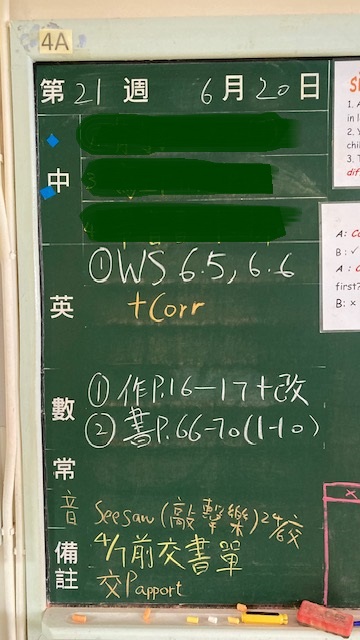 4A
第 21 週 6 月 20 日
中
英 ① WS 6.5, 6.6
+Corr
數 ① 作P.16-17+改
② 書P.66-70(1-10)
常
音 Seesaw (敲擊樂) 24/6交
備註 4/7前交書單
交Papport
1. A
in l
2. Y
chi
3. T
dif
A: Co
B: ✓
A: C
first?
B: ×